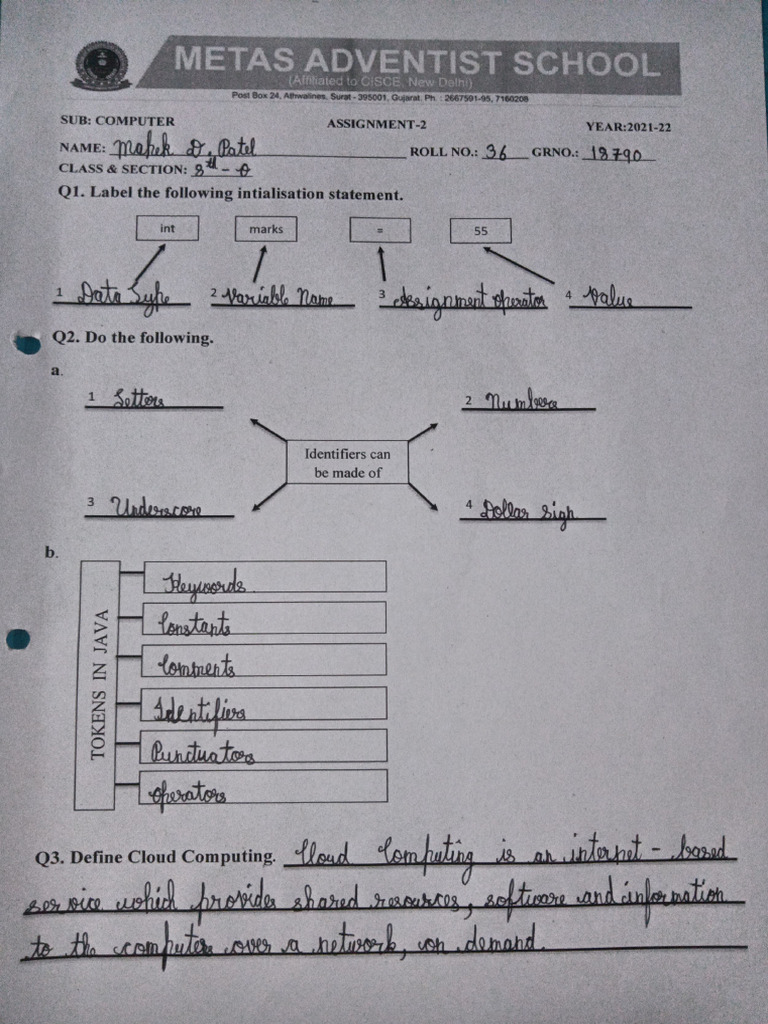 METAS ADVENTIST SCHOOL
(Affiliated to CISCE, New Delhi)
Post Box 24, Athwalines, Surat - 395001, Gujarat. Ph. : 2667591-95, 7160208
SUB: COMPUTER ASSIGNMENT-2 YEAR:2021-22
NAME: Mahek D. Patel ROLL NO.: 36 GRNO.: 18790
CLASS & SECTION: 8th -
Q1. Label the following intialisation statement.
int marks = 55
1 Data Type 2 Variable Name 3 Assignment operator 4 Value
Q2. Do the following.
a.
1 Letters 2 Numbers
Identifiers can
be made of
3 Underscore 4 Dollar sign
b.
TOKENS IN JAVA
Keywords
Constants
Comments
Identifiers
Punctuators
operators
Q3. Define Cloud Computing. Cloud Computing is an internet - based
service which provides shared resources, software and information
to the computers over a network, on demand.